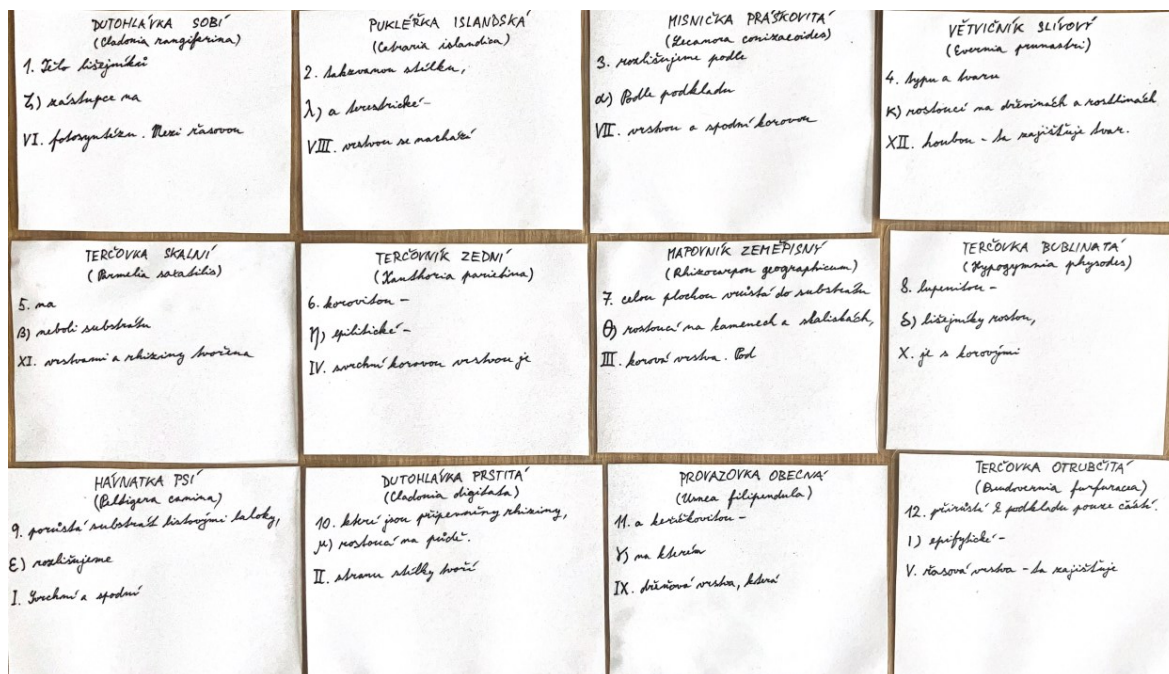 DUTOHLÁVKA SOBÍ
(Cladonia rangiferina)
1. Tělo lišejníků
ζ) zástupce na
VI. fotosyntézu. Mezi řasovou
PUKLÉŘKA ISLANDSKÁ
(Cetraria islandica)
2. takzvanou stélku,
λ) a terestrické -
VIII. vrstvou se nachází
MISNIČKA PRÁŠKOVITÁ
(Lecanora conizaeoides)
3. rozlišujeme podle
α) Podle podkladu
VII. vrstvou a spodní korovou
VĚTVIČNÍK SLÍVOVÝ
(Evernia prunastri)
4. typu a tvaru
κ) rostoucí na dřevinách a rostlinách
XII. houbou - ta zajišťuje tvar.
TERČOVKA SKALNÍ
(Parmelia saxatilis)
5. na
β) neboli substrátu
XI. vrstvami a rhiziny tvořena
TERČOVNÍK ZEDNÍ
(Xanthoria parietina)
6. korovitou -
η) epilitické -
IV. svrchní korovou vrstvou je
MAPOVNÍK ZEMĚPISNÝ
(Rhizocarpon geographicum)
7. celou plochou vrůstá do substrátu
θ) rostoucí na kamenech a skaliskách,
III. korová vrstva. Pod
TERČOVKA BUBLINATÁ
(Hypogymnia physodes)
8. lupenitou -
δ) lišejníky rostou,
X. je s korovými
HÁVNATKA PSÍ
(Peltigera canina)
9. porůstá substrát listovými laloky,
ε) rozlišujeme
I. Svrchní a spodní
DUTOHLÁVKA PRSTITÁ
(Cladonia digitata)
10. které jsou připevněny rhiziny,
μ) rostoucí na půdě.
II. stranu stélky tvoří
PROVAZOVKA OBECNÁ
(Usnea filipendula)
11. a keříčkovitou -
γ) na kterém
IX. dřeňová vrstva, která
TERČOVKA OTRUBČITÁ
(Pseudovernia furfuracea)
12. přirůstá k podkladu pouze částí.
ι) epifytické -
V. řasová vrstva - ta zajišťuje